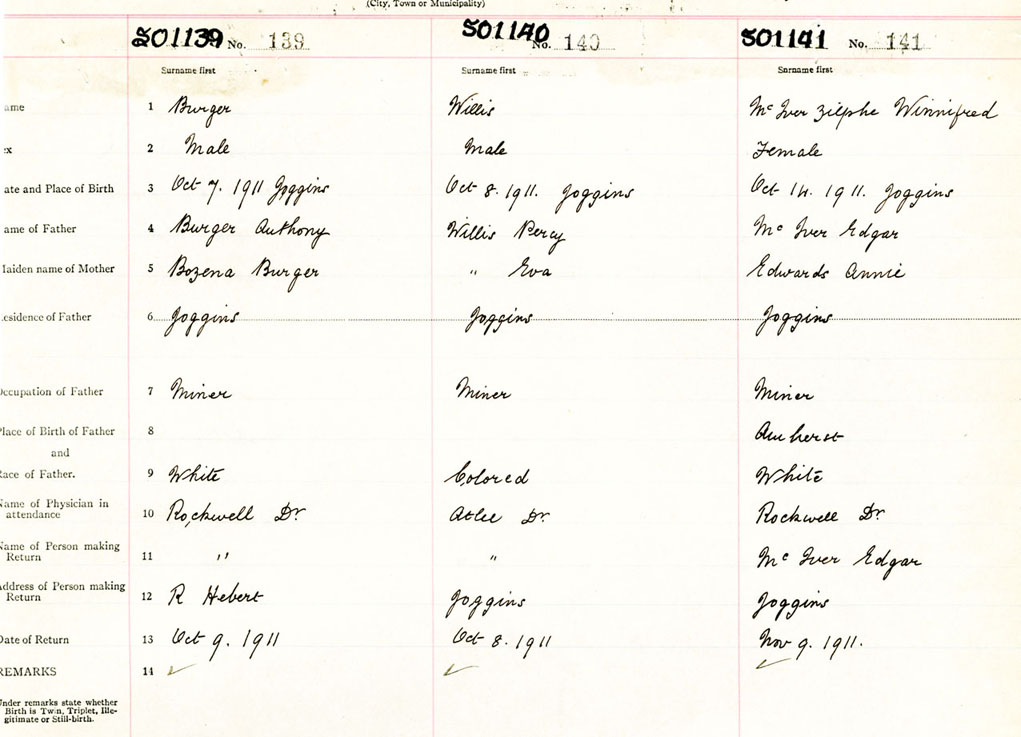 (City, Town or Municipality)
S01139 No. 139 S01140 No. 140 S01141 No. 141
Surname first Surname first Surname first
ame 1 Burger Willis McIver Zilphe Winnifred
ex 2 Male Male Female
ate and Place of Birth 3 Oct 7. 1911 Joggins Oct 8. 1911. Joggins Oct 14. 1911. Joggins
ame of Father 4 Burger Anthony Willis Percy McIver Edgar
aiden name of Mother 5 Bozena Burger " Eva Edwards Annie
esidence of Father 6 Joggins Joggins Joggins
Occupation of Father 7 Miner Miner Miner
Place of Birth of Father 8 Amherst
and
Race of Father. 9 White Colored White
Name of Physician in
attendance 10 Rockwell Dr. Atlee Dr. Rockwell Dr.
Name of Person making
Return 11 " " McIver Edgar
Address of Person making
Return 12 R Hebert Joggins Joggins
Date of Return 13 Oct 9. 1911 Oct 8. 1911 Nov 9. 1911.
REMARKS 14
Under remarks state whether
Birth is Twin, Triplet, Ille-
gitimate or Still-birth.